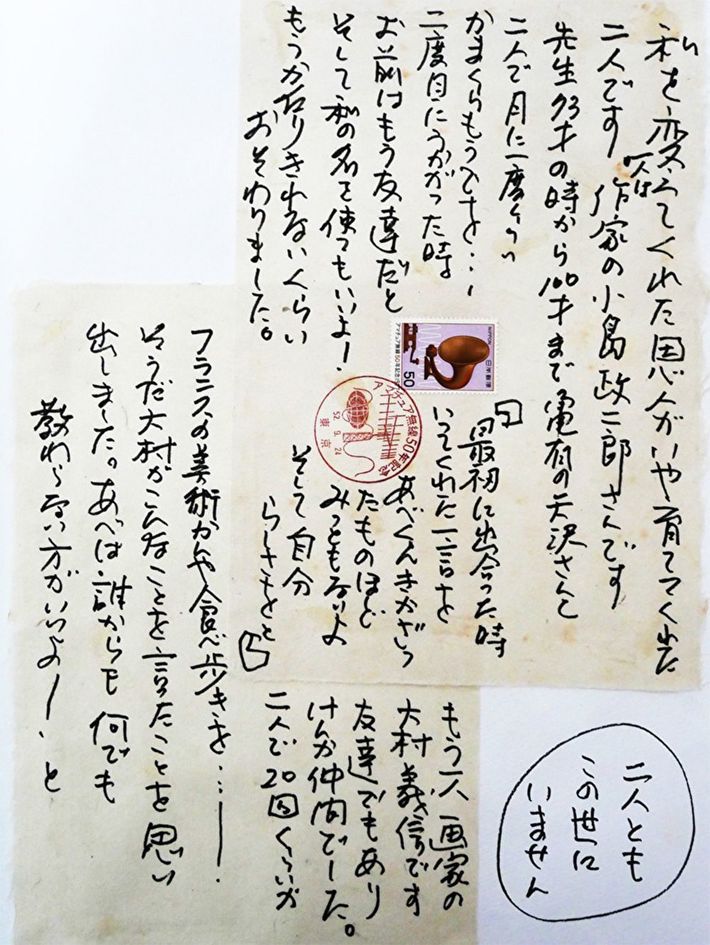 私を変えてくれた恩人がいや育ててくれた
人は
二人です 作家の小島政二郎さんです
先生93才の時から100才まで亀有の天沢さんと
二人で月に一度くらい
かまくらもうでを…
二度目にうかがった時
お前はもう友達だと
そして私の名を使てもいいよー
もうかたりきれないくらい
おそわりました。
最初に出合った時
いってくれた一言を
あべくんきかざっ
たものほど
みっともないよ
そして自分
らしさをと
もう一人画家の
大村義信です
友達でもあり
けんか仲間でーした。
二人で20回くらいか
フランスの美術かんや食べ歩きを…ー
そうだ大村がこんなことを言たことを思い
出しました。あべは誰からも何でも
教わらない方がいいよー と
二人とも
この世に
いません
NIPPON 日本郵便
アマチュア無線50年記念
50
アマチュア無線50年記念
52.9.24
東京